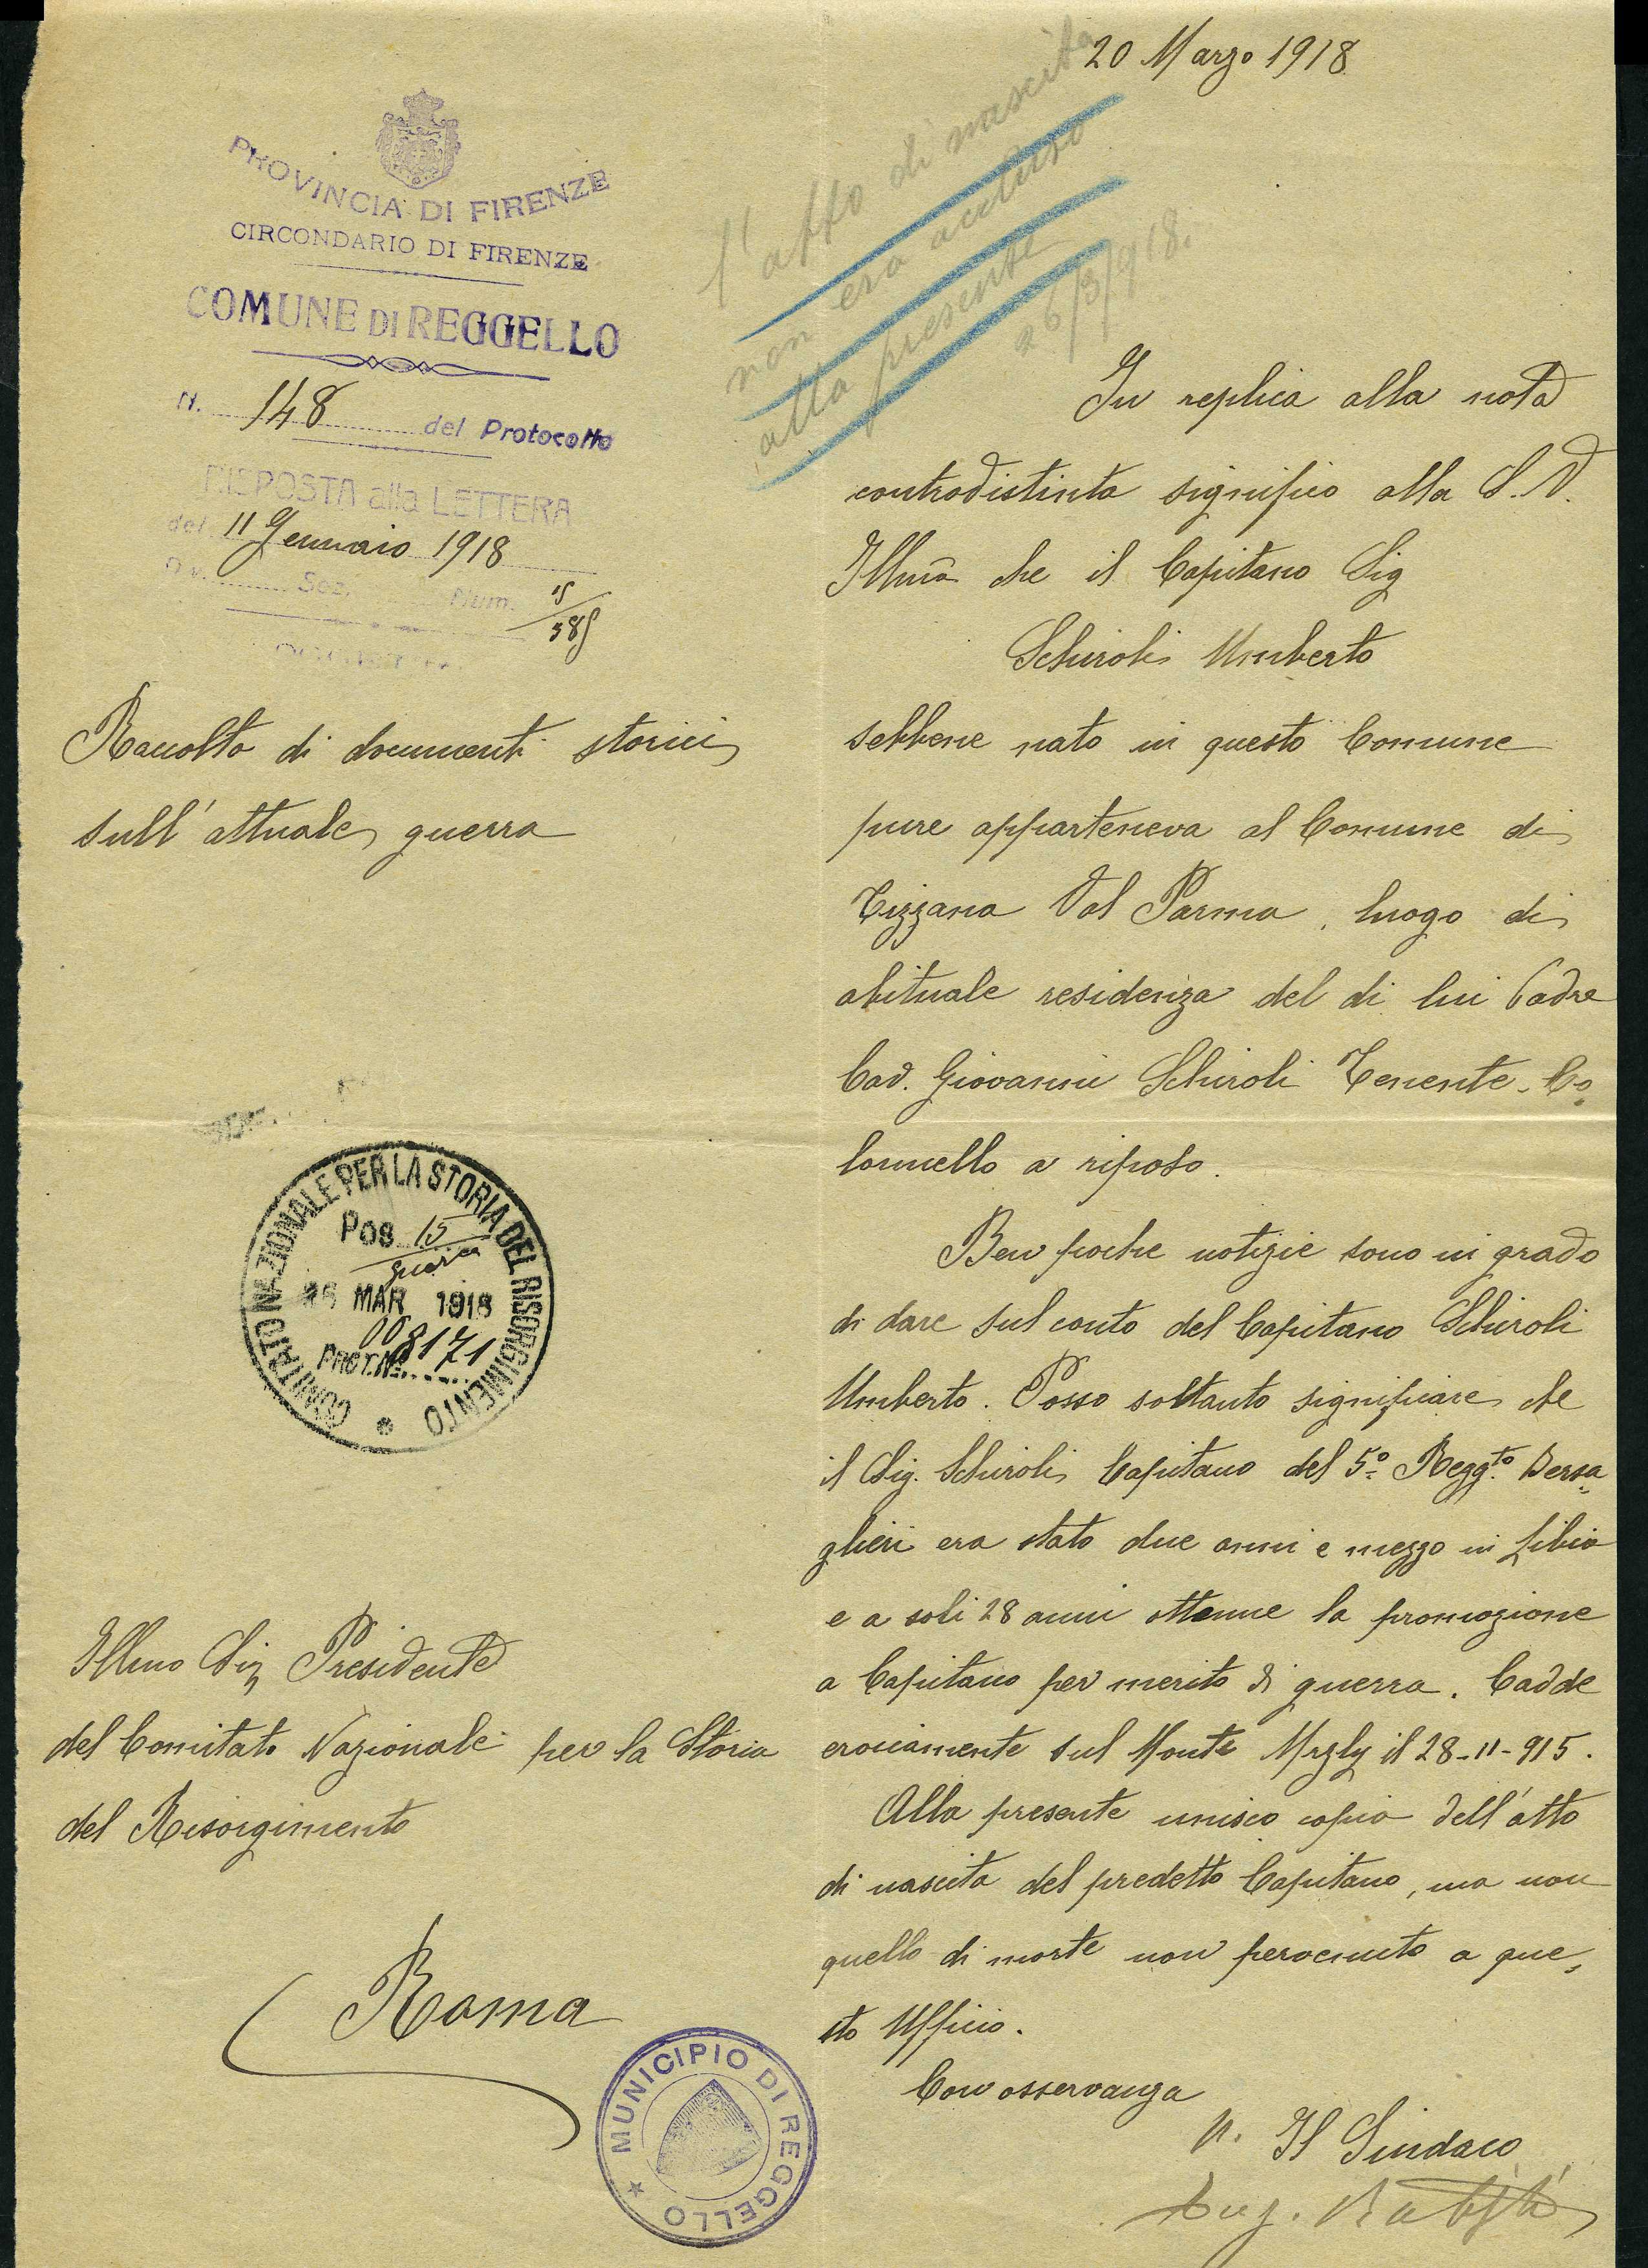 20 Marzo 1918
PROVINCIA DI FIRENZE
CIRCONDARIO DI FIRENZE
COMUNE DI REGGELLO
N. 148 del Protocollo
RISPOSTA alla LETTERA
del 11 Gennaio 1918
Div. Sez. Num. 15/385
OGGETTO
Raccolta di documenti storici
sull'attuale guerra
l'atto di nascita
non era accluso
alla presente
26/3/918.
In replica alla nota
controdistinta significo alla S.V.
Illma che il Capitano Sig
Schiroli Umberto
sebbene nato in questo Comune
pure apparteneva al Comune di
Tizzana Val Parma, luogo di
abituale residenza del di lui Padre
Cav. Giovanni Schiroli Tenente-Co
lonnello a riposo.
Ben poche notizie sono in grado
di dare sul conto del Capitano Schiroli
Umberto. Posso soltanto significare che
il Sig. Schiroli Capitano del 5º Reggto Bersa
glieri era stato due anni e mezzo in Libia
e a soli 28 anni ottenne la promozione
a Capitano per merito di guerra. Cadde
eroicamente sul Monte Mrzly il 28-11-915.
Alla presente unisco copia dell'atto
di nascita del predetto Capitano, ma non
quello di morte non pervenuto a que
sto Ufficio.
Con osservanza
p. Il Sindaco
COMITATO NAZIONALE PER LA STORIA DEL RISORGIMENTO
Pos 15
guerra
26 MAR 1918
008171
PROT. Nº
Illmo Sig Presidente
del Comitato Nazionale per la Storia
del Risorgimento
Roma
MUNICIPIO DI REGGELLO